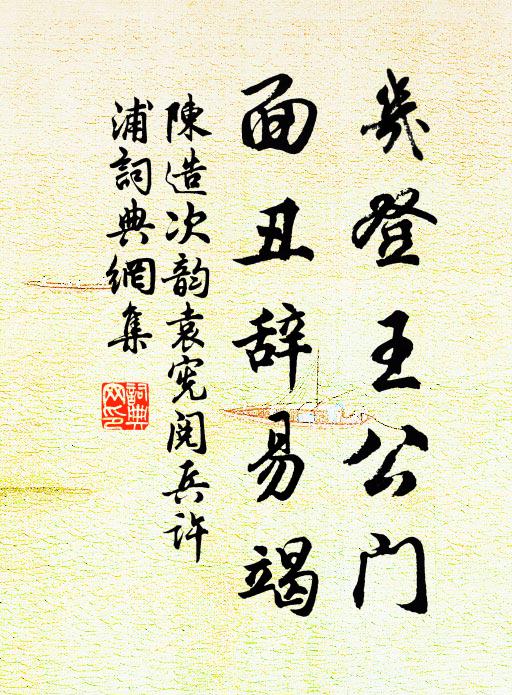 幾登王公门
面丑辞易竭
陳造次韵袁宪阅兵許
浦詞典網集
詞典
网印